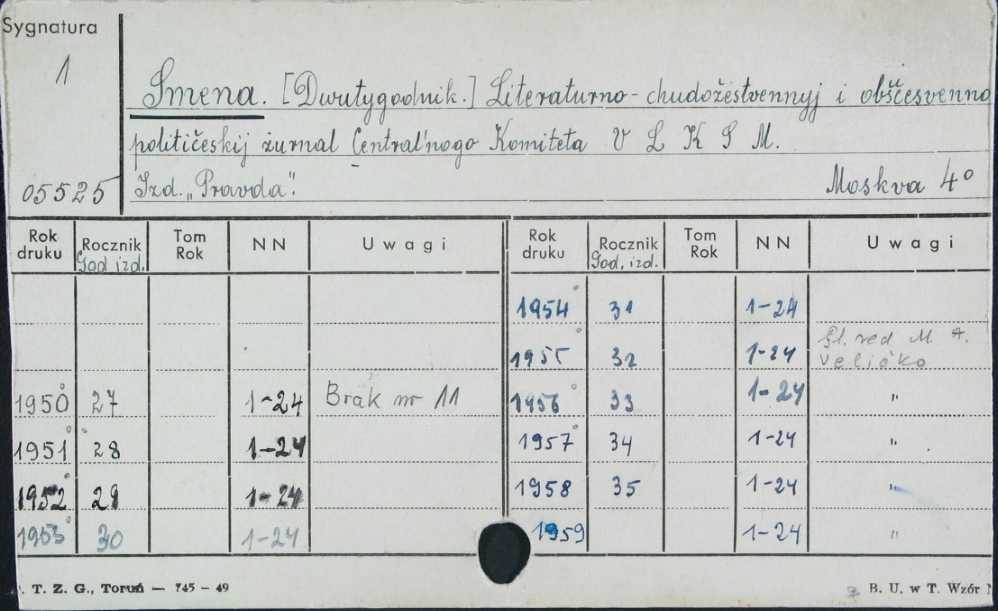 Sygnatura
1
05525
Smena. [Dwutygodnik.] Literaturno-chudožestvennyj i obščesvenno
političeskij žurnal Central'nogo Komiteta V L K S M.
Izd. „Pravda". Moskva 4°
Rok druku Rocznik God izd. Tom Rok NN Uwagi
1950 27 1-24 Brak nr 11
1951 28 1-24
1952 29 1-24
1953 30 1-24
Rok druku Rocznik God. izd. Tom Rok NN Uwagi
1954 31 1-24
1955 32 1-24 Gl. red. M. A. Veličko
1956 33 1-24 "
1957 34 1-24 "
1958 35 1-24 "
1959 1-24 "
T. Z. G., Toruń — 745 - 49
B. U. w T. Wzór